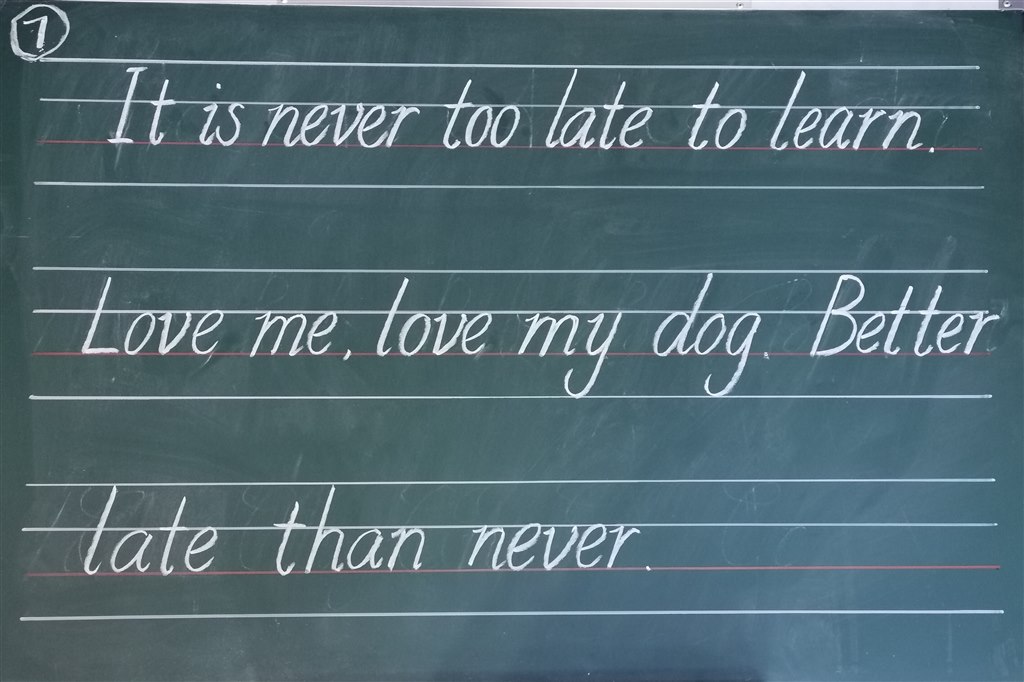 7
It is never too late to learn.
Love me, love my dog. Better
late than never.